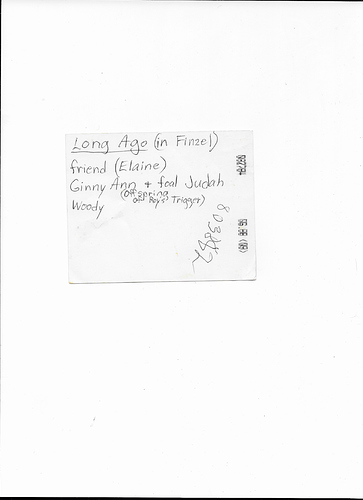 Long Ago (in Finzel)
friend (Elaine)
Ginny Ann + foal Judah
(Offspring
Woody of Roy's Trigger)